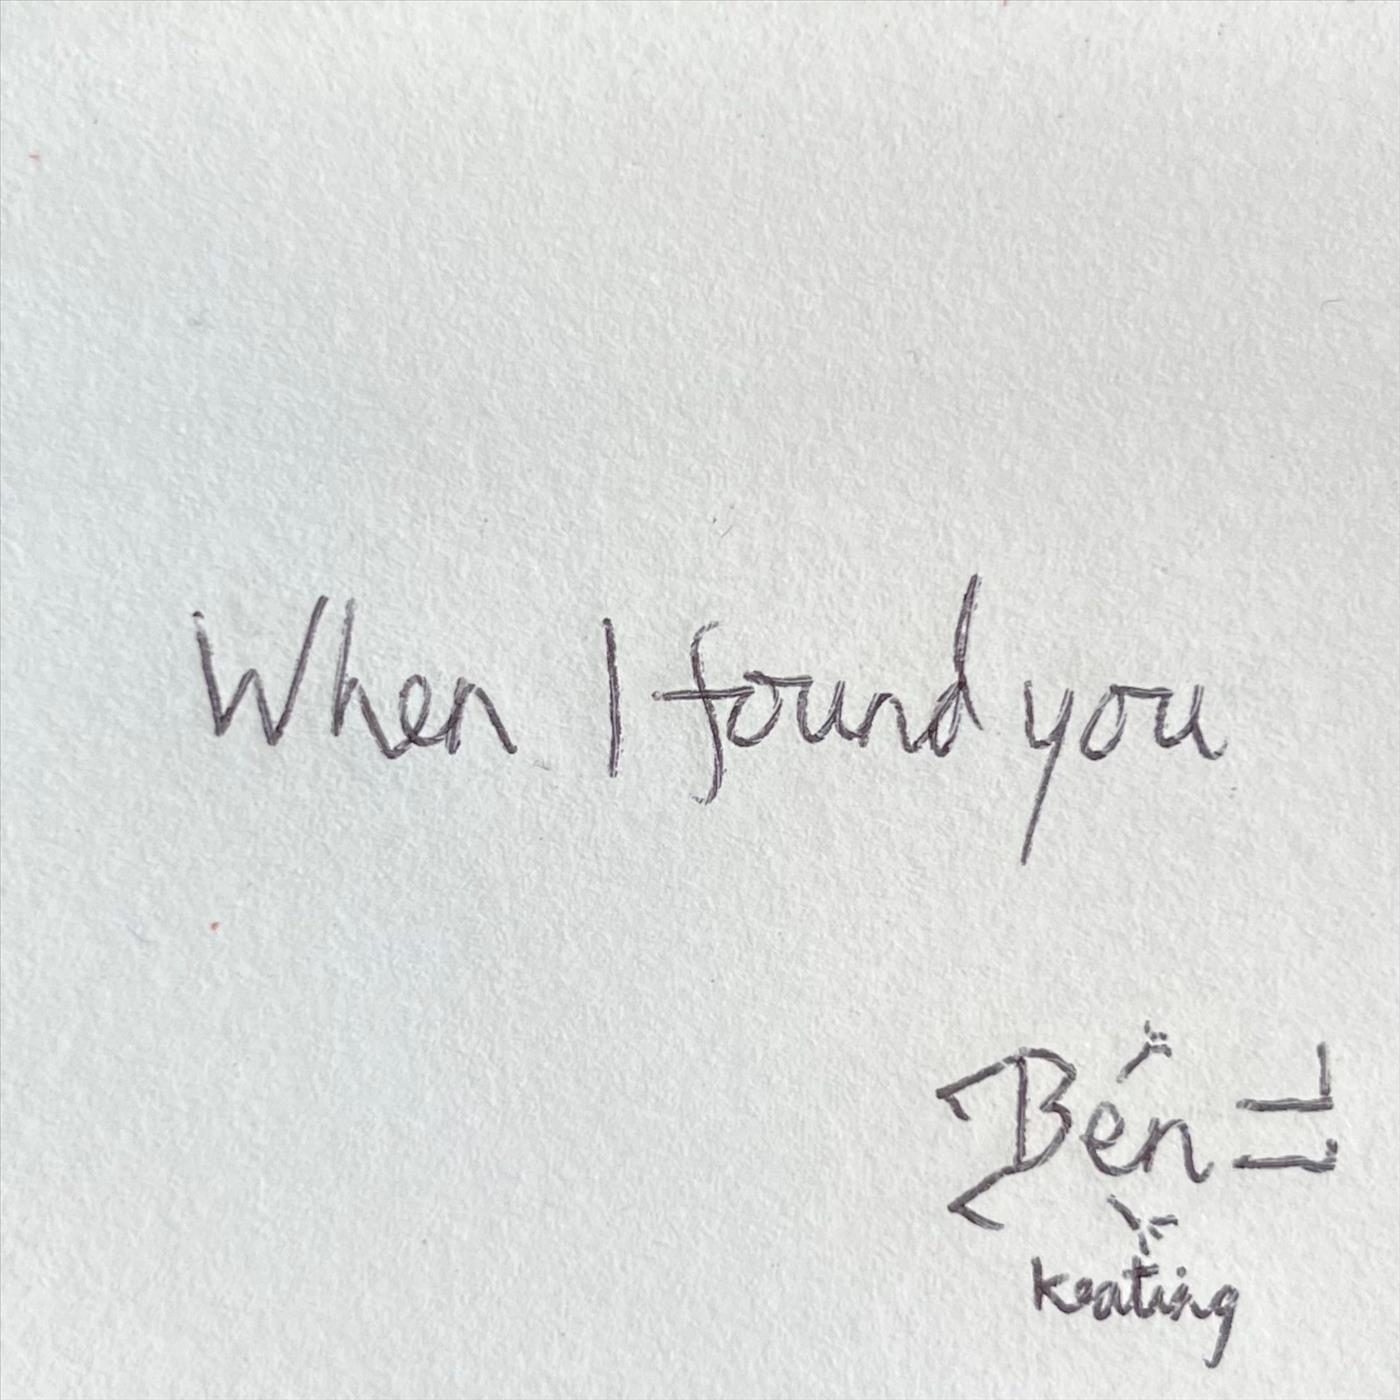 When I found you
Ben
keating